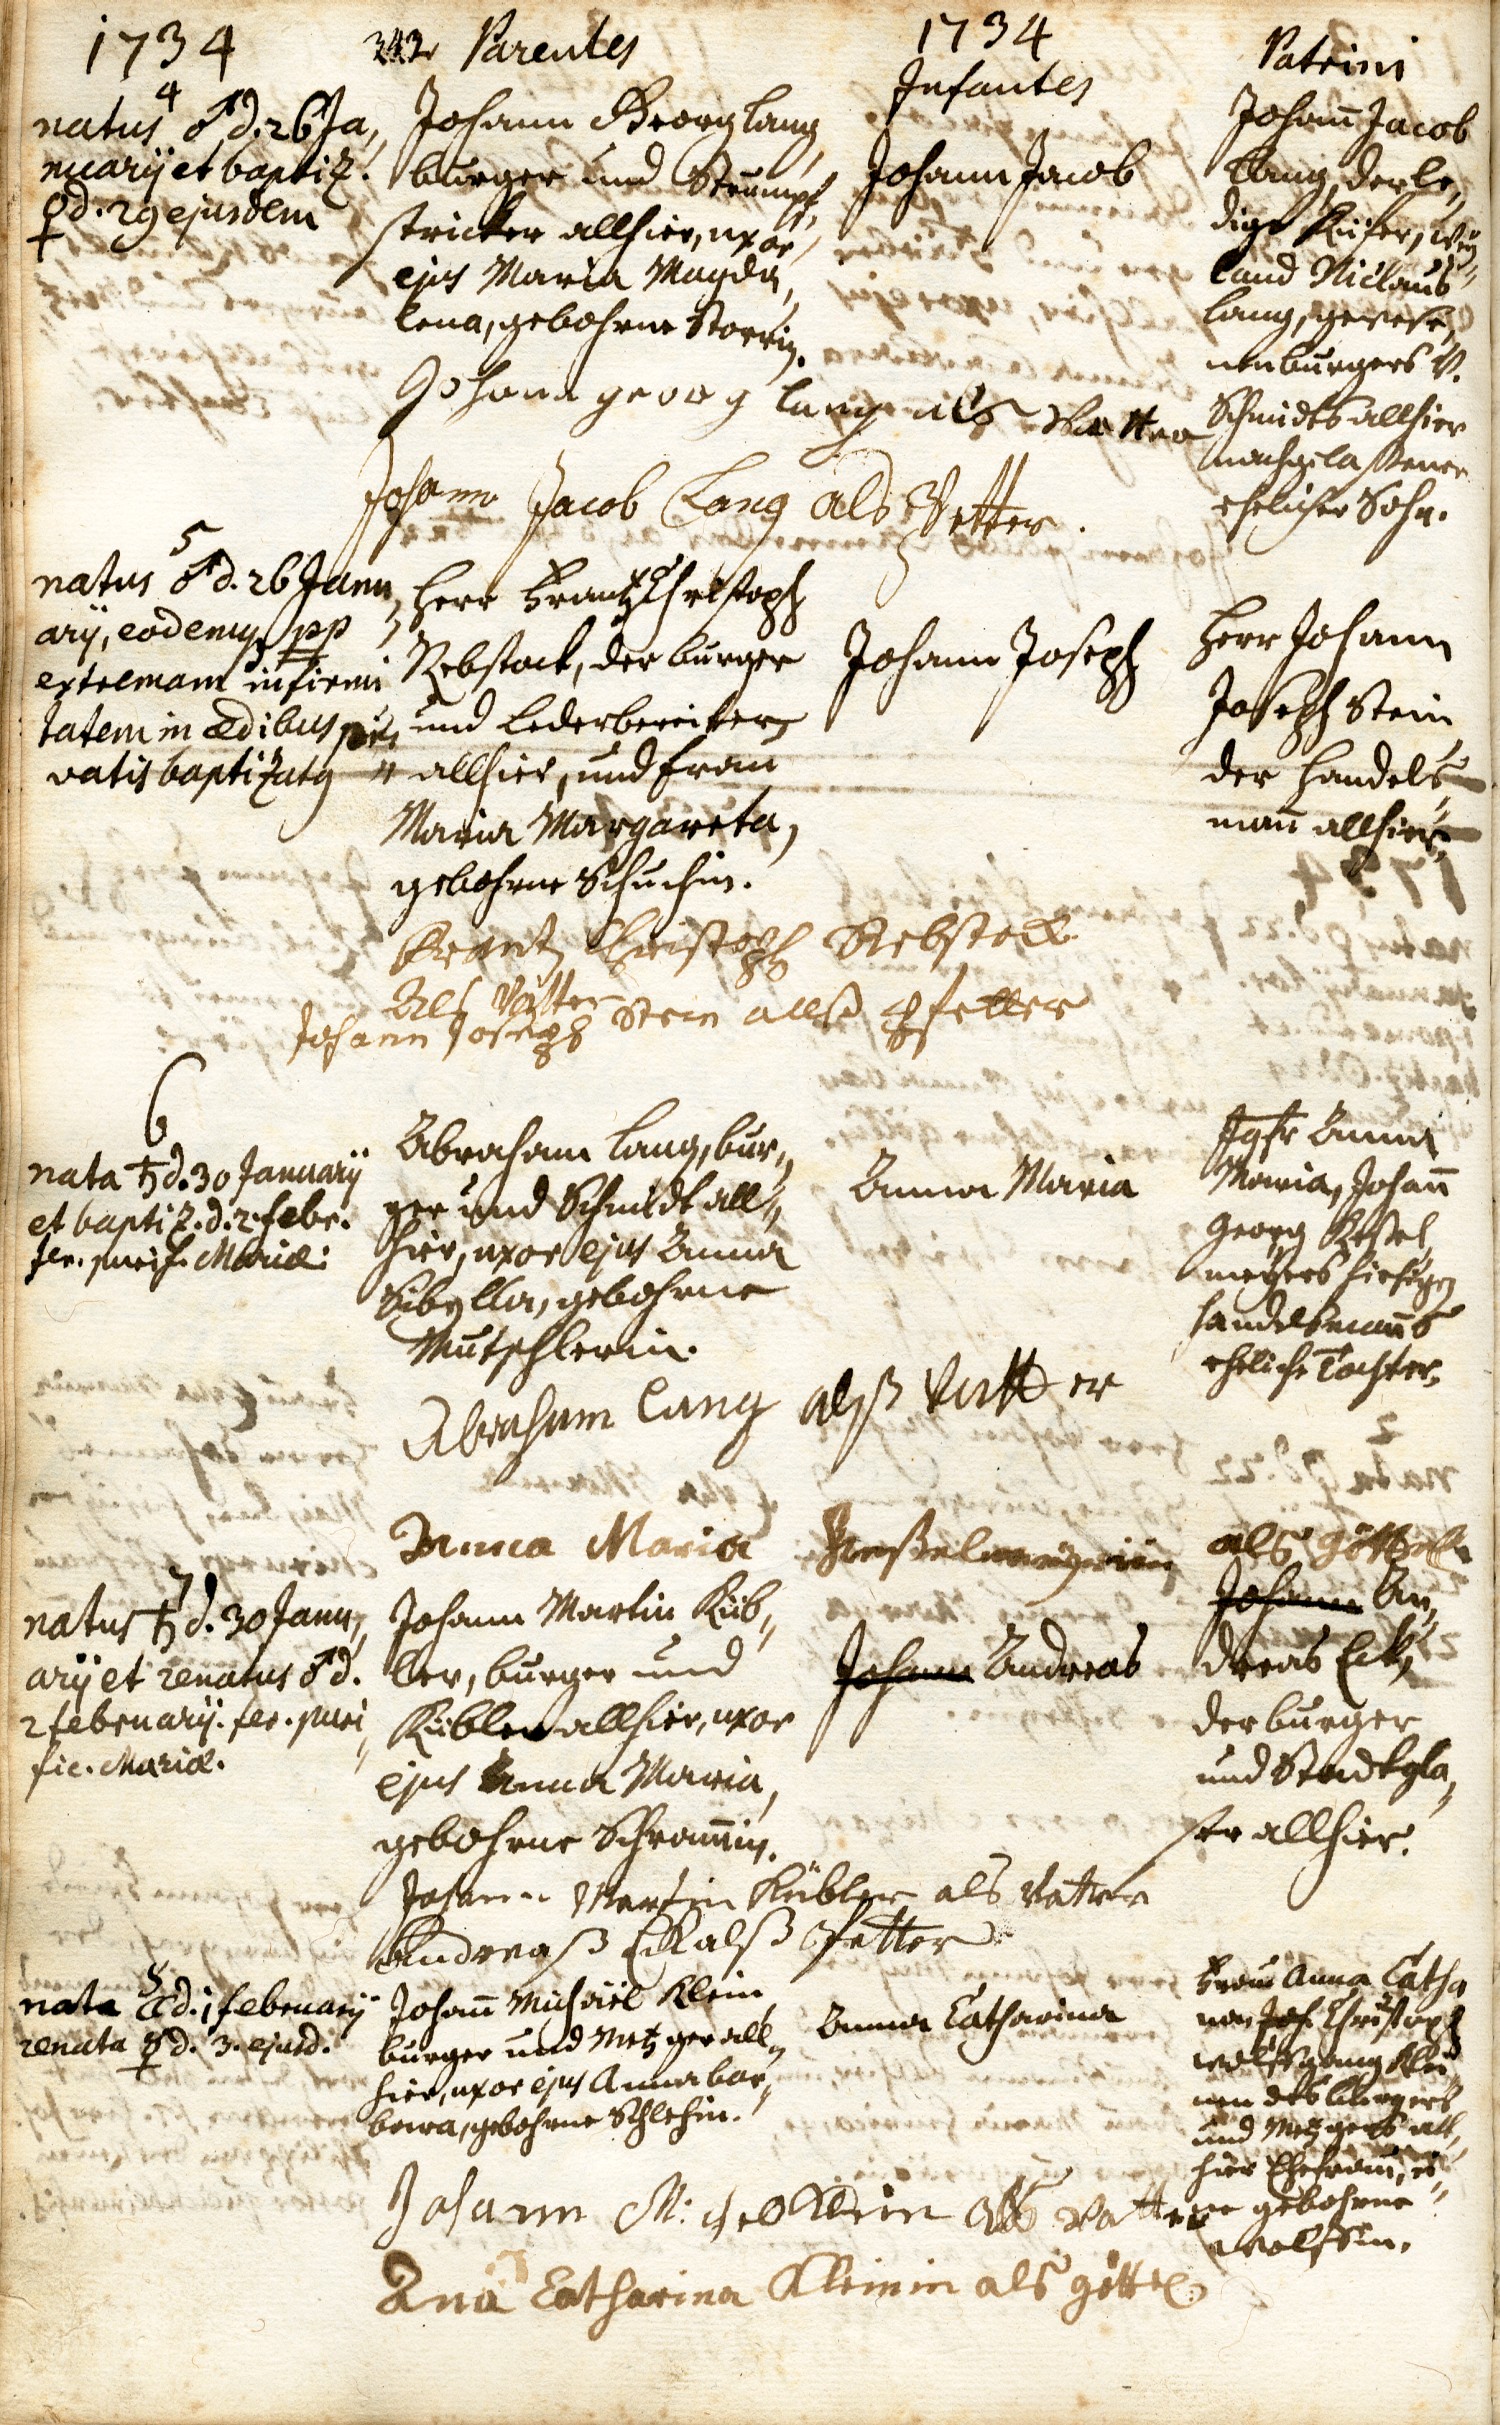 1734
342 Parentes
1734
Infantes
Patrini
4
natus ♂ d. 26 Ja,
nuarÿ et baptiz.
♀ d. 29 ejusdem
Johann Georg Lang
burger und Strumpf,
stricker allhier, uxor
ejus Maria Magda,
lena, gebohrne Storrin.
Johann Jacob
Johañ Jacob
Lang, der le,
dige Küfer, weÿ,
land Niclaus
Lang, gewese,
nen burgers v.
Schmidts allhier
nachgelaßener
ehelicher Sohn.
Johann georg lang als Vatter
Johann Jacob Lang als Pfetter.
5
natus ♂ d. 26 Janu,
arÿ, eodemq pp
extremam infirmi
tatem in ædibus pri,
vatis baptizatg
Herr Frantz Christoph
Rebstock, der burger
und Lederbereiter
allhier, und Frau
Maria Margareta,
gebohrne Schuchin.
Johann Joseph
Herr Johann
Joseph Stein
der Handels,
mañ allhier.
Frantz Christoph Rebstock
Als Vatter
Johann Joseph Stein alß Pfetter
6
nata ♄ d. 30 Januarÿ
et baptiz. d. 2. febr.
fer. purif. Mariæ.
Abraham Lang, bur,
ger und Schmidt all,
hier, uxor ejus Anna
Sibylla, gebohrne
Mutschlerin.
Anna Maria
Jgfr Anna
Maria, Johañ
Georg Keßel
meÿers hiesigen
Handelsmanns
eheliche Tochter.
Abraham Lang alß Vatter
Anna Maria Keßelmeÿerin als göttel
7
natus ♄ d. 30 Janu,
arÿ et renatus ♂ d.
2 februarÿ. fer. puri
fic. Mariæ.
Johann Martin Küb,
ler, burger und
Kübler allhier, uxor
ejus Anna Maria,
gebohrne Schram̄in.
Johann Andreas
Johann An,
dreas Eck,
der burger
und Stadtgla,
ser allhier.
Johann Martin Kübler als Vatter
Andreaß Eck alß Pfetter
8
nata ☾ d. 1 februarÿ
renata ☿ d. 3. ejusd.
Johañ Michäel Klein,
burger und Metzger all,
hier, uxor ejus Anna bar,
bara, gebohrne Schlehin.
Anna Catharina
Frau Anna Catha
rina Joh. Christoph
Wolffgang Klei,
nen des burgers
und Metzgers all,
hier Ehefrau, ei,
ne gebohrne
Wolffin.
Johann Michel Klein als Vatter
Ana Catharina Kleinin als göttel